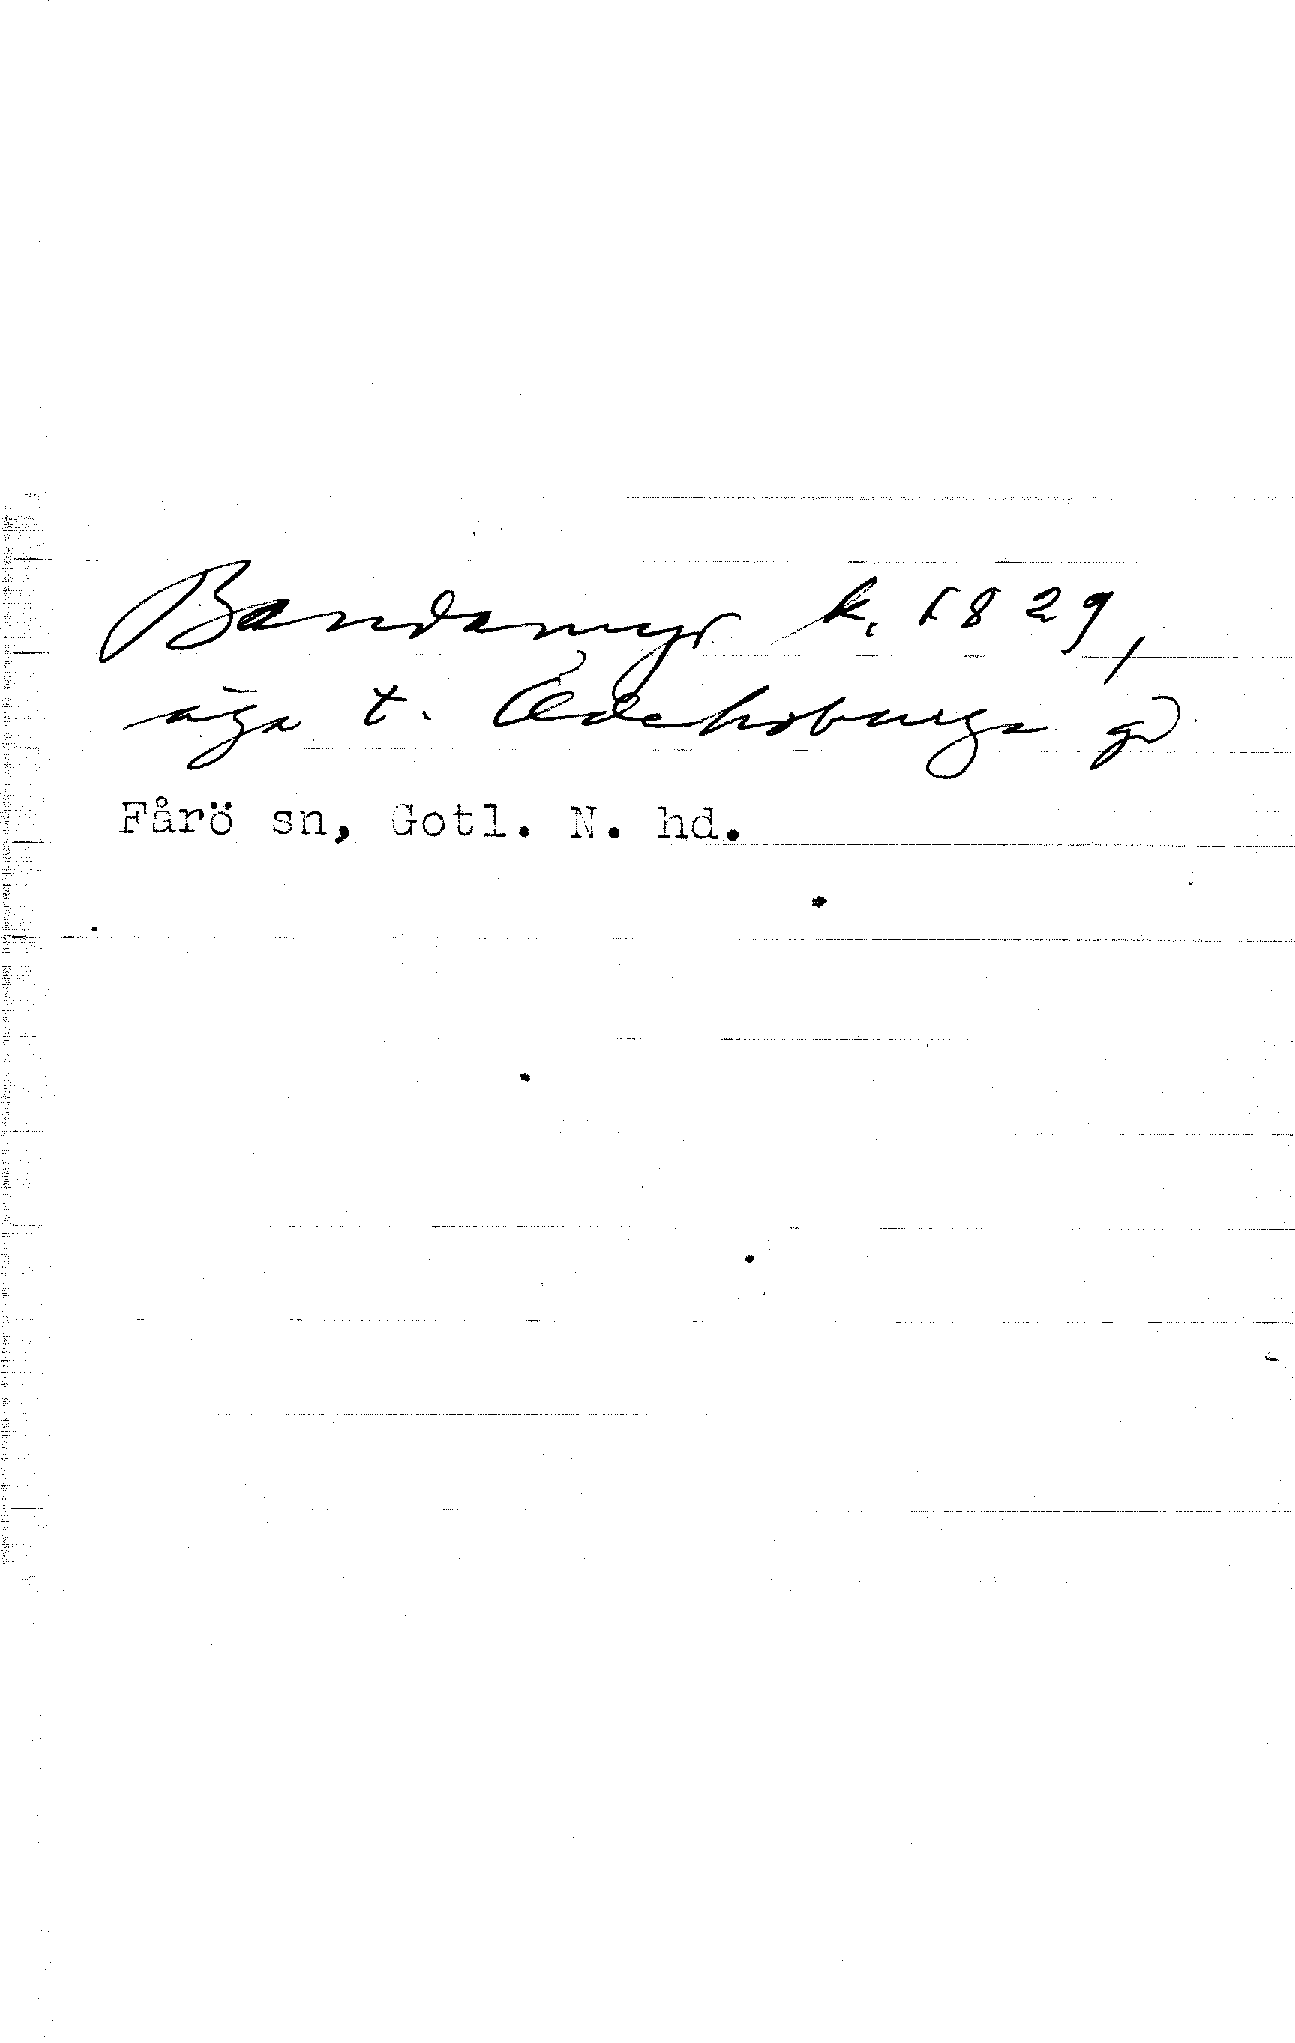 Bandamyr k. 1829,
äga t. Ödehoburga gd
Fårö sn, Gotl. N. hd.